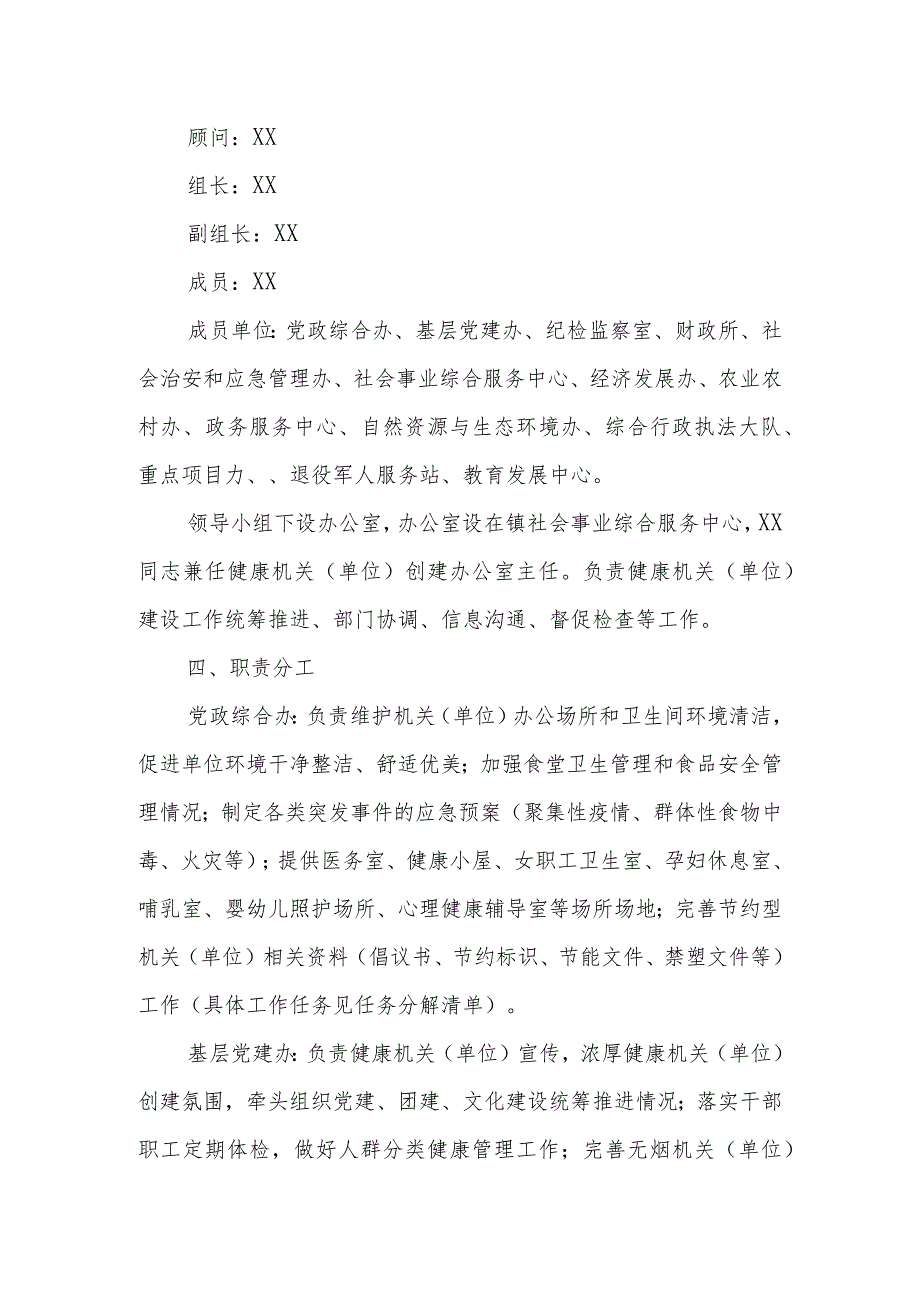 顾问：XX
组长：XX
副组长：XX
成员：XX
成员单位：党政综合办、基层党建办、纪检监察室、财政所、社
会治安和应急管理办、社会事业综合服务中心、经济发展办、农业农
村办、政务服务中心、自然资源与生态环境办、综合行政执法大队、
重点项目力、、退役军人服务站、教育发展中心。
领导小组下设办公室，办公室设在镇社会事业综合服务中心，XX
同志兼任健康机关（单位）创建办公室主任。负责健康机关（单位）
建设工作统筹推进、部门协调、信息沟通、督促检查等工作。
四、职责分工
党政综合办：负责维护机关（单位）办公场所和卫生间环境清洁，
促进单位环境干净整洁、舒适优美；加强食堂卫生管理和食品安全管
理情况；制定各类突发事件的应急预案（聚集性疫情、群体性食物中
毒、火灾等）；提供医务室、健康小屋、女职工卫生室、孕妇休息室、
哺乳室、婴幼儿照护场所、心理健康辅导室等场所场地；完善节约型
机关（单位）相关资料（倡议书、节约标识、节能文件、禁塑文件等）
工作（具体工作任务见任务分解清单）。
基层党建办：负责健康机关（单位）宣传，浓厚健康机关（单位）
创建氛围，牵头组织党建、团建、文化建设统筹推进情况；落实干部
职工定期体检，做好人群分类健康管理工作；完善无烟机关（单位）